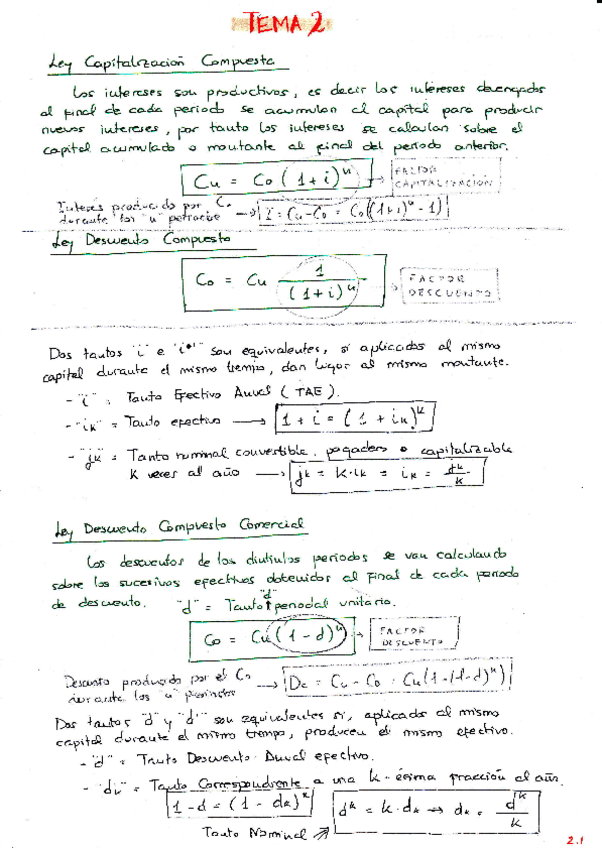 TEMA 2
Ley Capitalización Compuesta
Los intereses son productivos, es decir los intereses devengados
al final de cada periodo se acumulan al capital para producir
nuevos intereses, por tanto los intereses se calculan sobre el
capital acumulado o montante al final del periodo anterior.
Cn = Co (1+i)^n → FACTOR CAPITALIZACIÓN
Interés producido por Co
durante los "n" periodos → I = Cn - Co = Co((1+i)^n - 1)
Ley Descuento Compuesto
Co = Cn 1/(1+i)^n → FACTOR DESCUENTO
Dos tantos "i" e "i*" son equivalentes, si aplicados al mismo
capital durante el mismo tiempo, dan lugar al mismo montante.
- "i" = Tanto Efectivo Anual (TAE).
- "ik" = Tanto efectivo → 1 + i = (1 + ik)^k
- "jk" = Tanto nominal convertible, pagadero o capitalizable
K veces al año → jk = K·ik = ik = jk/k
Ley Descuento Compuesto Comercial
Los descuentos de los distintos periodos se van calculando
sobre los sucesivos efectivos obtenidos al final de cada periodo
de descuento. "d" = Tanto "d" periodal unitario.
Co = Cn (1 - d)^n → FACTOR DESCUENTO
Descuento producido por el Co
durante los "n" periodos → Dc = Cn - Co = Cn(1-(1-d)^n)
Dos tantos "d" y "d'" son equivalentes si, aplicados al mismo
capital durante el mismo tiempo, producen el mismo efectivo.
- "d" = Tanto Descuento Anual efectivo.
- "dk" = Tanto Correspondiente a una k-ésima fracción al año.
1 - d = (1 - dk)^k
d^k = k·dk → dk = d^k/k
Tanto Nominal ↗
2.1